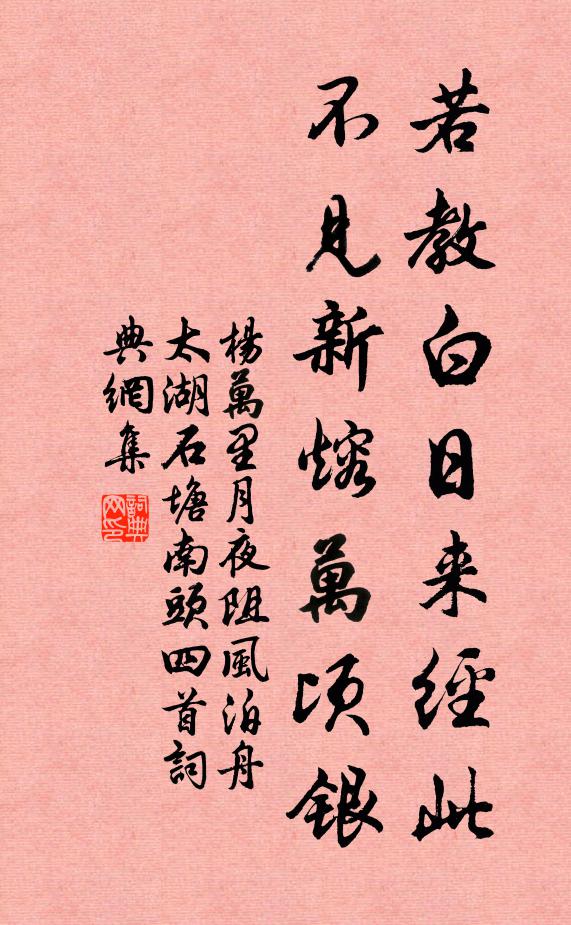 若教白日来經此
不見新熔萬頃銀
楊萬里月夜阻風泊舟
太湖石塘南頭四首詞
典網集
詞典网印